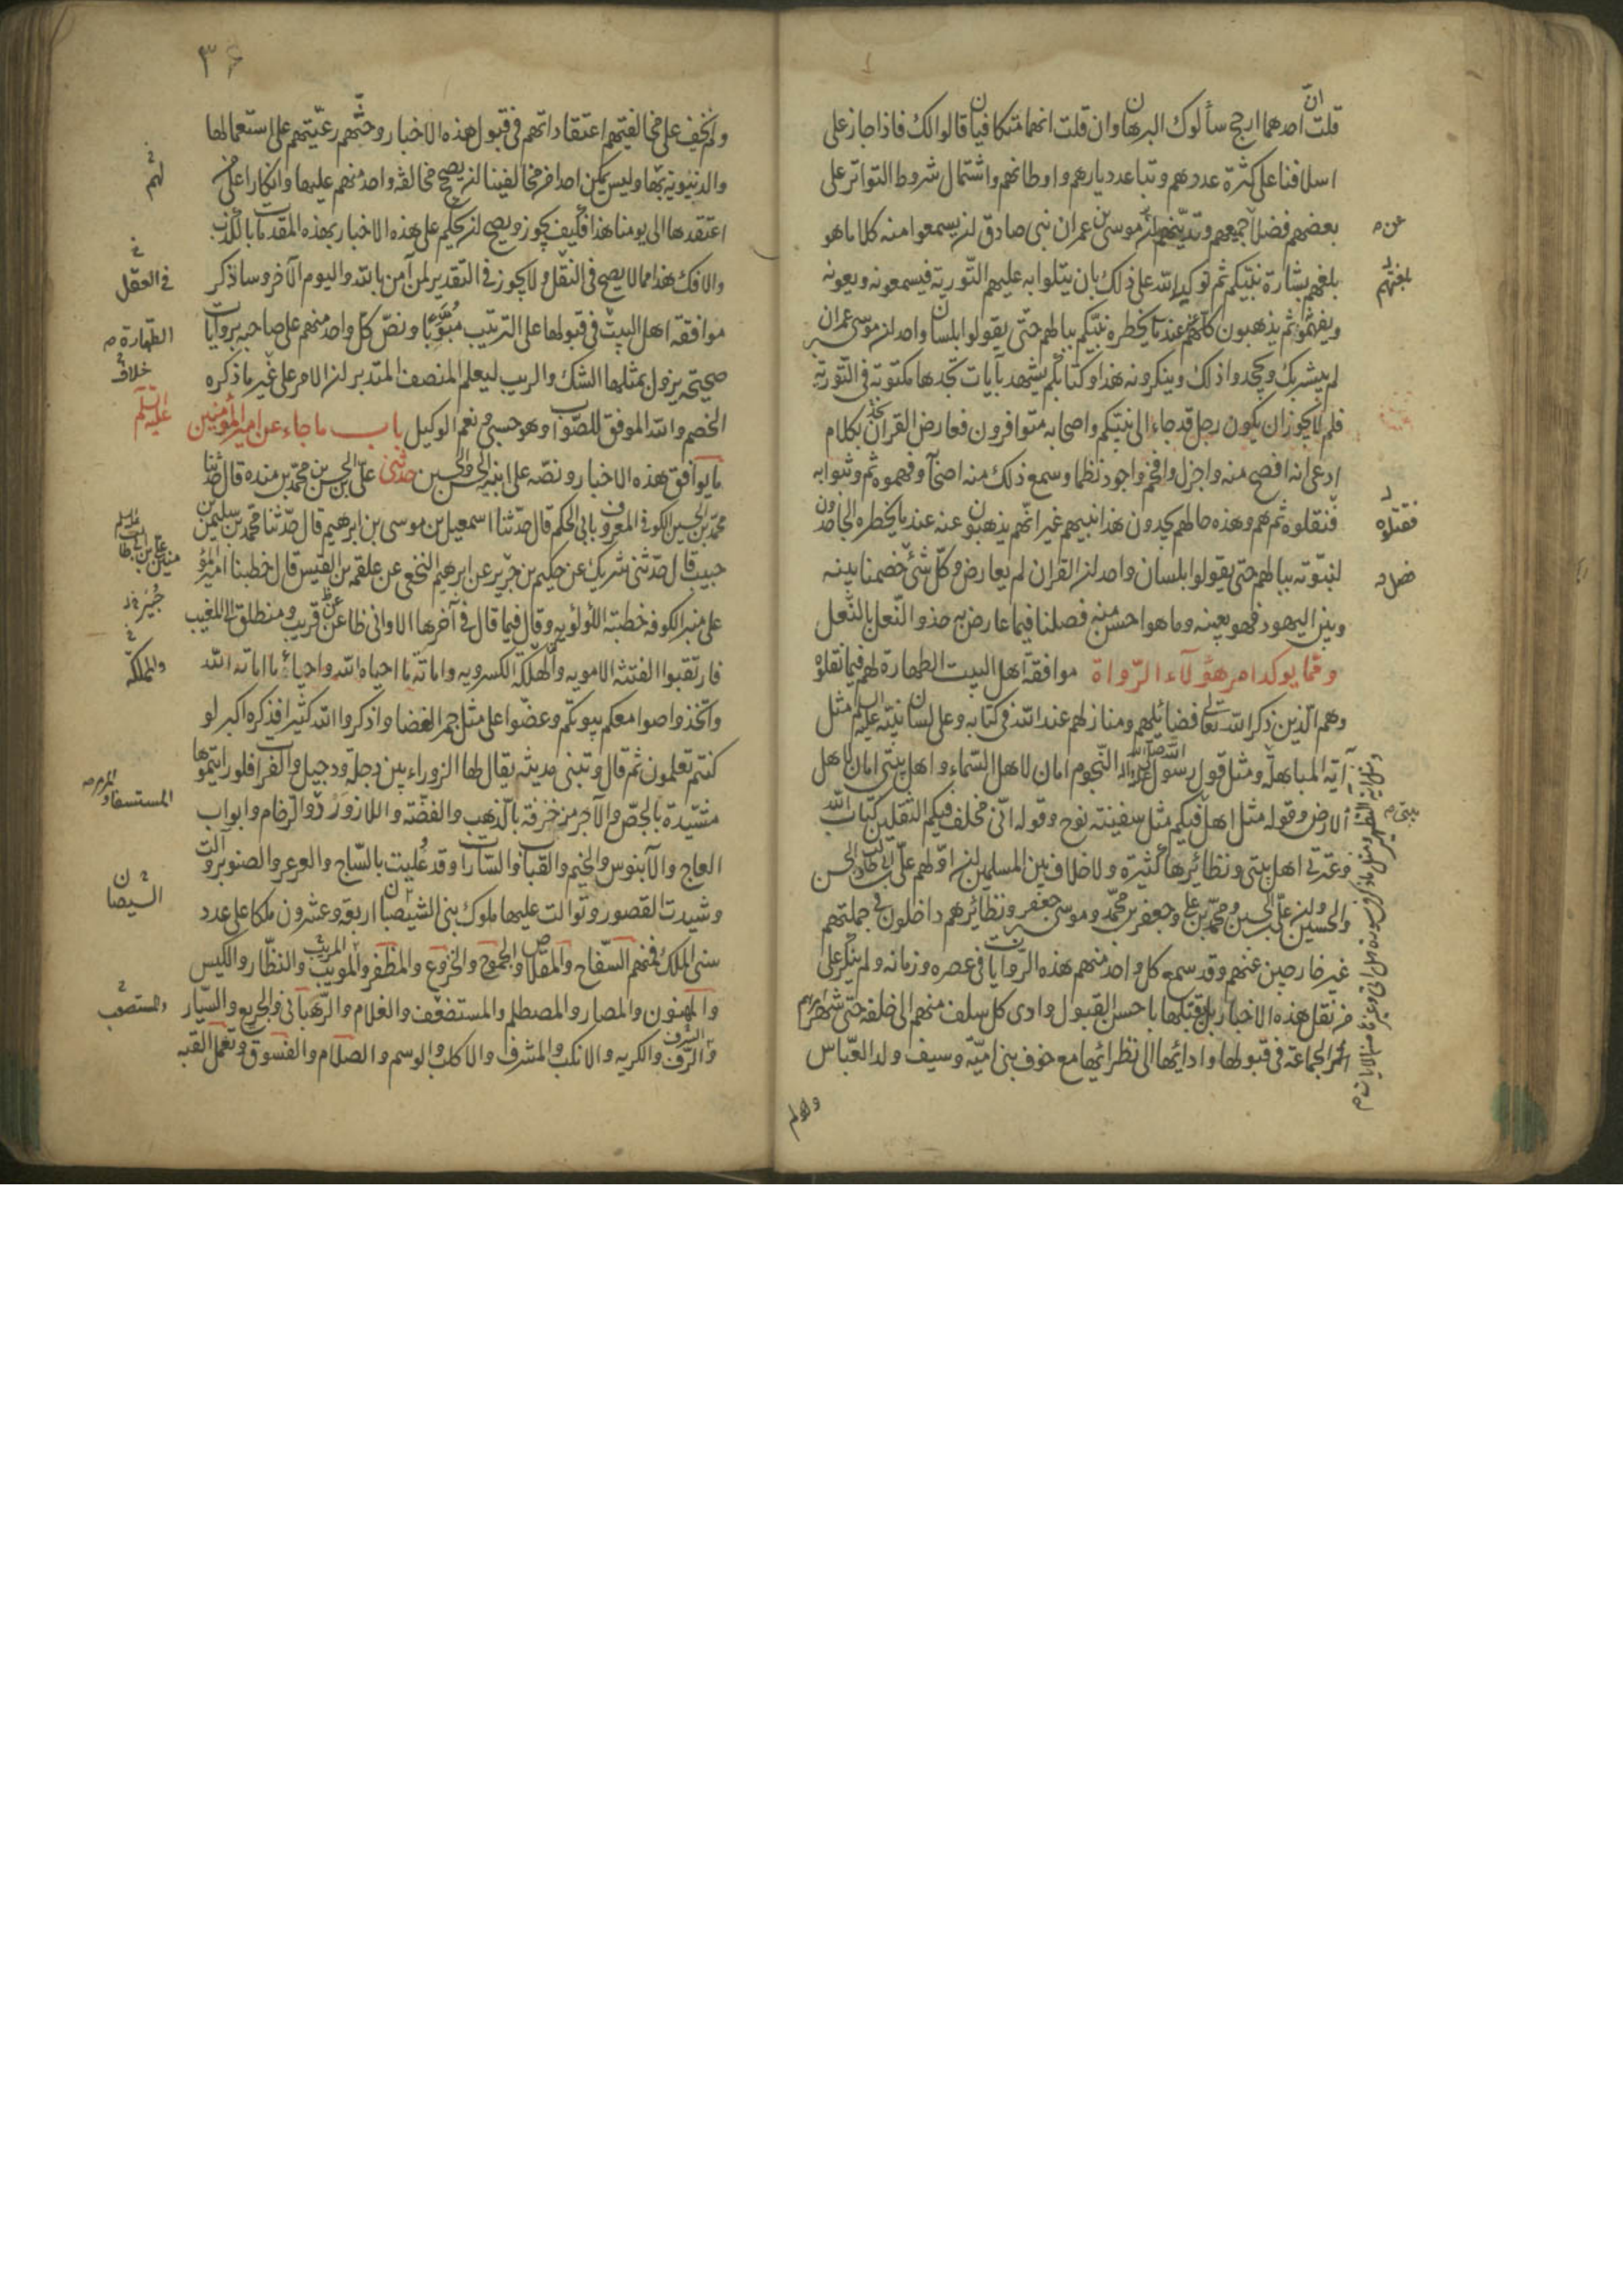 قلت انّ احدهما ارجح سألوك البرهان وان قلت انهما متكافيان قالوا لك فاذا جاز على
اسلافنا على كثرة عددهم وتباعد ديارهم واوطانهم واشتمال شروط التواتر على
بعضهم فضلا جميعهم وتدينهم لموسى بن عمران نبى صادق ان يسمعوا منه كلاما هو
بلغهم بشارة نبيّكم ثم توكيد الله على ذلك بان يتلوا به عليهم التّورية فيسمعونه ويعونه
ويفهموه ثم يذهبون كلهم عند ما يخطره نبيّكم ببالهم حتّى يقولوا بلسان واحد ان موسى بن عمران
لم يبشر بك ويجحدوا ذلك وينكرونه هذا وكتابكم يشهد بآيات تجدها مكتوبة فى التّورية
فلم لا يجوز ان يكون رجل قد جاء الى نبيّكم واصحابه متوافرون فعارض القرآن بكلام
ادعى انه افصح منه واجزل وافخم واجود نظما وسمع ذلك منه اصحابه وفهموه ثم وثبوا به
فنقلوه ثم هم وهذه حالهم يجدون هذا نبيهم غير انّهم يذهبون عنه عند ما يخطره الجاحدون
لنبوّته ببالهم حتى يقولوا بلسان واحد ان القران لم يعارض وكلّ شئ خصمنا بينه
وبين اليهود فهو بعينه وما هو احسن منه فصلنا فيما عارض به حذو النّعل بالنّعل
وممّا يوكد امر هؤلاء الرّواة موافقة اهل البيت الطهارة لهم فيما نقلوه
وهم الّذين ذكر الله تعالى فضائلهم ومنازلهم عند الله فى كتابه وعلى لسان نبيّه عليه السلم مثل
آية المباهلة ومثل قول رسول الله صلى الله عليه واله النّجوم امان لاهل السّماء واهل بيتى امان لاهل
الارض وقوله مثل اهل فيكم مثل سفينة نوح وقوله انّى مخلف فيكم الثقلين كتاب الله
وعترتى اهل بيتى ونظائرها كثيرة ولا خلاف بين المسلمين ان اوّلهم علىّ بن ابى طالب والحسن
والحسين وان علىّ بن الحسين ومحمّد بن على وجعفر بن محمّد وموسى بن جعفر ونظائرهم داخلون فى جملتهم
غير خارجين عنهم وقد سمع كل واحد منهم هذه الرّوايات فى عصره وزمانه ولم ينكر على
من نقل هذه الاخبار بل تقبلها باحسن القبول وادى كل سلف منهم الى خلفه حتّى شهر امرهم
امر الجماعة فى قبولها وادائها الى نظرائها مع خوف بنى اميّة وسيف ولد العبّاس
ولم
عن م
بلغتهم
فقتلوه
فصل د
بيتى م
٣٤
ولم يخف على مخالفيهم اعتقاداتهم فى قبول هذه الاخبار وحثّهم رعيّتهم على استعمالها
والدنيوية بها وليس يمكن احدا من مخالفينا ان يصح مخالفة واحد منهم عليها وانكارا على من
اعتقدها الى يومنا هذا فكيف يجوز ويصح ان يحكم على هذه الاخبار بهذه المقدمات بالكذب
والافك هذا مما لا يصح فى النقل ولا يجوز فى التقدير لمن آمن بالله واليوم الآخر وساذكر
موافقة اهل البيت فى قبولها على الترتيب مبوّبا ونصّ كل واحد منهم على صاحبه بروايات
صحيحة يزول بمثلها الشك والريب ليعلم المنصف المتدبر ان الامر على غير ما ذكره
الخصم والله الموفق للصّواب وهو حسبى ونعم الوكيل باب ما جاء عن امير المؤمنين
ما يوافق هذه الاخبار ونصّه على ابنيه الحسن والحسين حدثنى علىّ بن الحسن بن محمّد بن منده قال حدثنا
محمّد بن الحسين الكوفى المعروف بابى الحكم قال حدّثنا اسمعيل بن موسى بن ابرهيم قال حدّثنا محمّد بن سليمن بن
حبيب قال حدّثنى شريك عن حكيم بن جرير عن ابرهيم النخعى عن علقمه بن القيس قال خطبنا امير المؤ
على منبر الكوفه خطبته اللؤلؤيه وقال فيما قال فى آخرها الا وانى ظاعن عن قريب ومنطلق الى المغيب
فارتقبوا الفتنة الامويه والهلكة الكسرويه واماتة ما احياه الله واحياء ما اماته الله
واتخذوا صوامعكم بيوتكم وعضّوا على مثل جمر الغضا واذكروا الله كثيرا فذكره اكبر لو
كنتم تعلمون ثم قال وتبنى مدينة يقال لها الزوراء بين دجلة ودجيل والفرات فلو رايتموها
مشيّدة بالجصّ والآجر مزخرفة بالذهب والفضّة واللازورد والرخام وابواب
العاج والآبنوس والخيم والقباب والستارات وقد عُليت بالسّاج والعرعر والصنوبر والت
وشيدت القصور وتوالت عليها ملوك بنى الشيصبان اربعة وعشرون ملكا على عدد
سنى الملك فمنهم السّفاح والمقلاص والجموح والخزوع والمظفر والمويب والنظّار والكيس
والمهنون والمصار والمصطلم والمستضعف والغلام والرّهبانى والجريع والسّيار
والتّرف والكريه والانكب والمشرف والاكلب والوسم والصلام والفسوق وتعمل القبه
لهم
فى العقل
الطهارة م
خلاف
عليه السلم
جُبَير
والمملكة
المستسقاة والمرمر
السيصان
والمستصعب